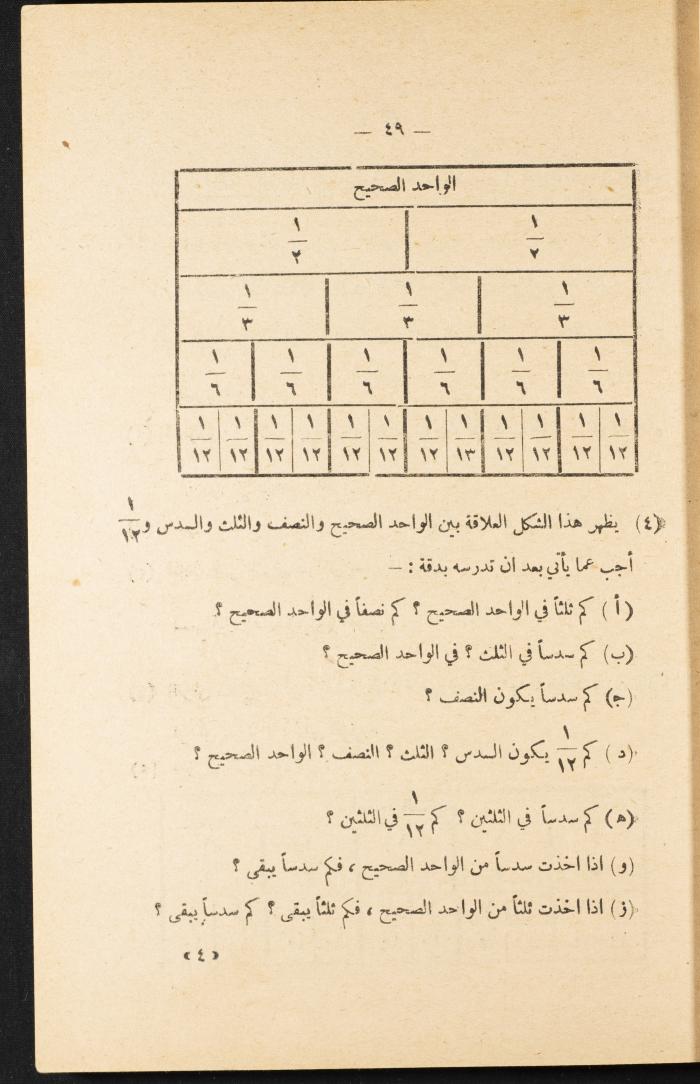 — ٤٩ —
الواحد الصحيح
١/٢ ١/٢
١/٣ ١/٣ ١/٣
١/٦ ١/٦ ١/٦ ١/٦ ١/٦ ١/٦
١/١٢ ١/١٢ ١/١٢ ١/١٢ ١/١٣ ١/١٢ ١/١٢ ١/١٢ ١/١٢ ١/١٢ ١/١٢ ١/١٢
(٤) يظهر هذا الشكل العلاقة بين الواحد الصحيح والنصف والثلث والسدس و ١/١٢
أجب عما يأتي بعد ان تدرسه بدقة : —
(أ) كم ثلثاً في الواحد الصحيح ؟ كم نصفاً في الواحد الصحيح ؟
(ب) كم سدساً في الثلث ؟ في الواحد الصحيح ؟
(ج) كم سدساً يكون النصف ؟
(د) كم ١/١٢ يكون السدس ؟ الثلث ؟ النصف ؟ الواحد الصحيح ؟
(ه) كم سدساً في الثلثين ؟ كم ١/١٢ في الثلثين ؟
(و) اذا اخذت سدساً من الواحد الصحيح ، فكم سدساً يبقى ؟
(ز) اذا اخذت ثلثاً من الواحد الصحيح ، فكم ثلثاً يبقى ؟ كم سدساً يبقى ؟
« ٤ »